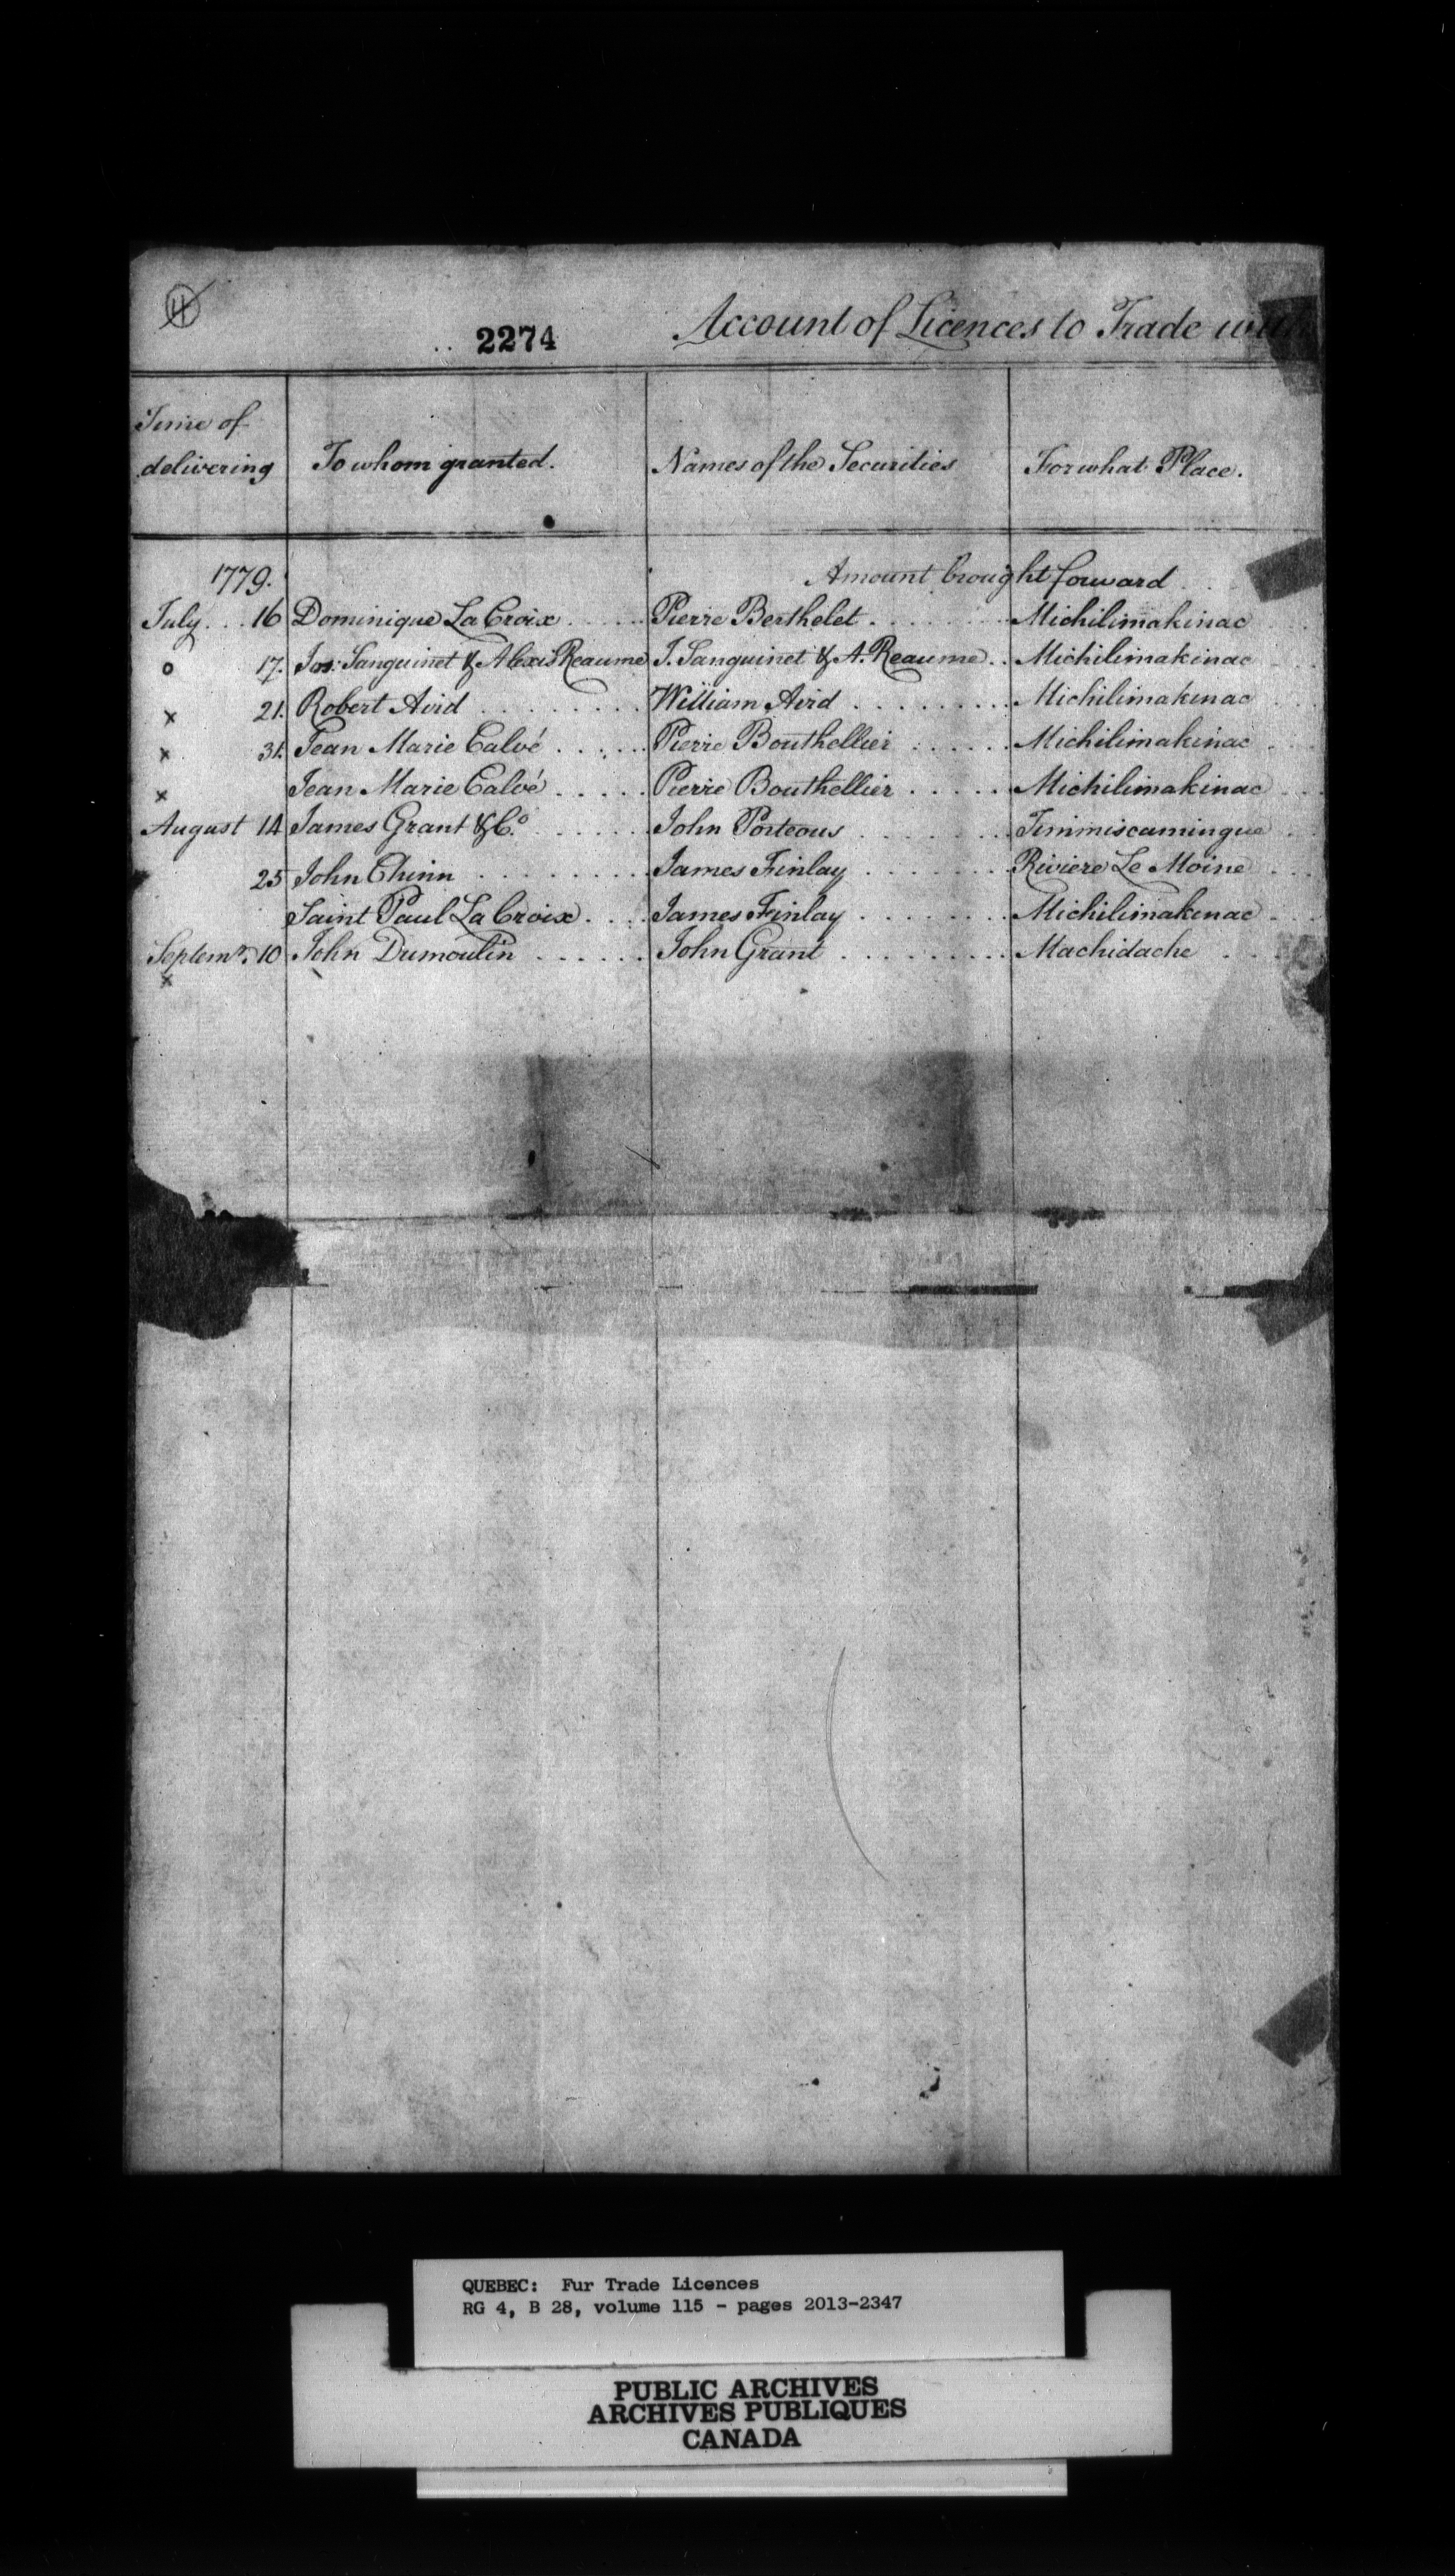 4
2274
Account of Licences to Trade with
Time of delivering | To whom granted. | Names of the Securities | For what Place.
1779. | Amount brought forward
July 16 | Dominique La Croix | Pierre Berthelet | Michilimakinac
o 17. | Jos: Sanguinet & Alexis Reaume | J. Sanguinet & A. Reaume | Michilimakinac
x 21. | Robert Aird | William Aird | Michilimakinac
x 31. | Jean Marie Calvé | Pierre Bouthellier | Michilimakinac
x | Jean Marie Calvé | Pierre Bouthellier | Michilimakinac
August 14 | James Grant & Co. | John Porteous | Timmiscamingue
25 | John Chinn | James Finlay | Riviere Le Moine
Saint Paul La Croix | James Finlay | Michilimakinac
Septemr. 10 | John Dumoulin | John Grant | Machidache
x
QUEBEC: Fur Trade Licences
RG 4, B 28, volume 115 - pages 2013-2347
PUBLIC ARCHIVES
ARCHIVES PUBLIQUES
CANADA